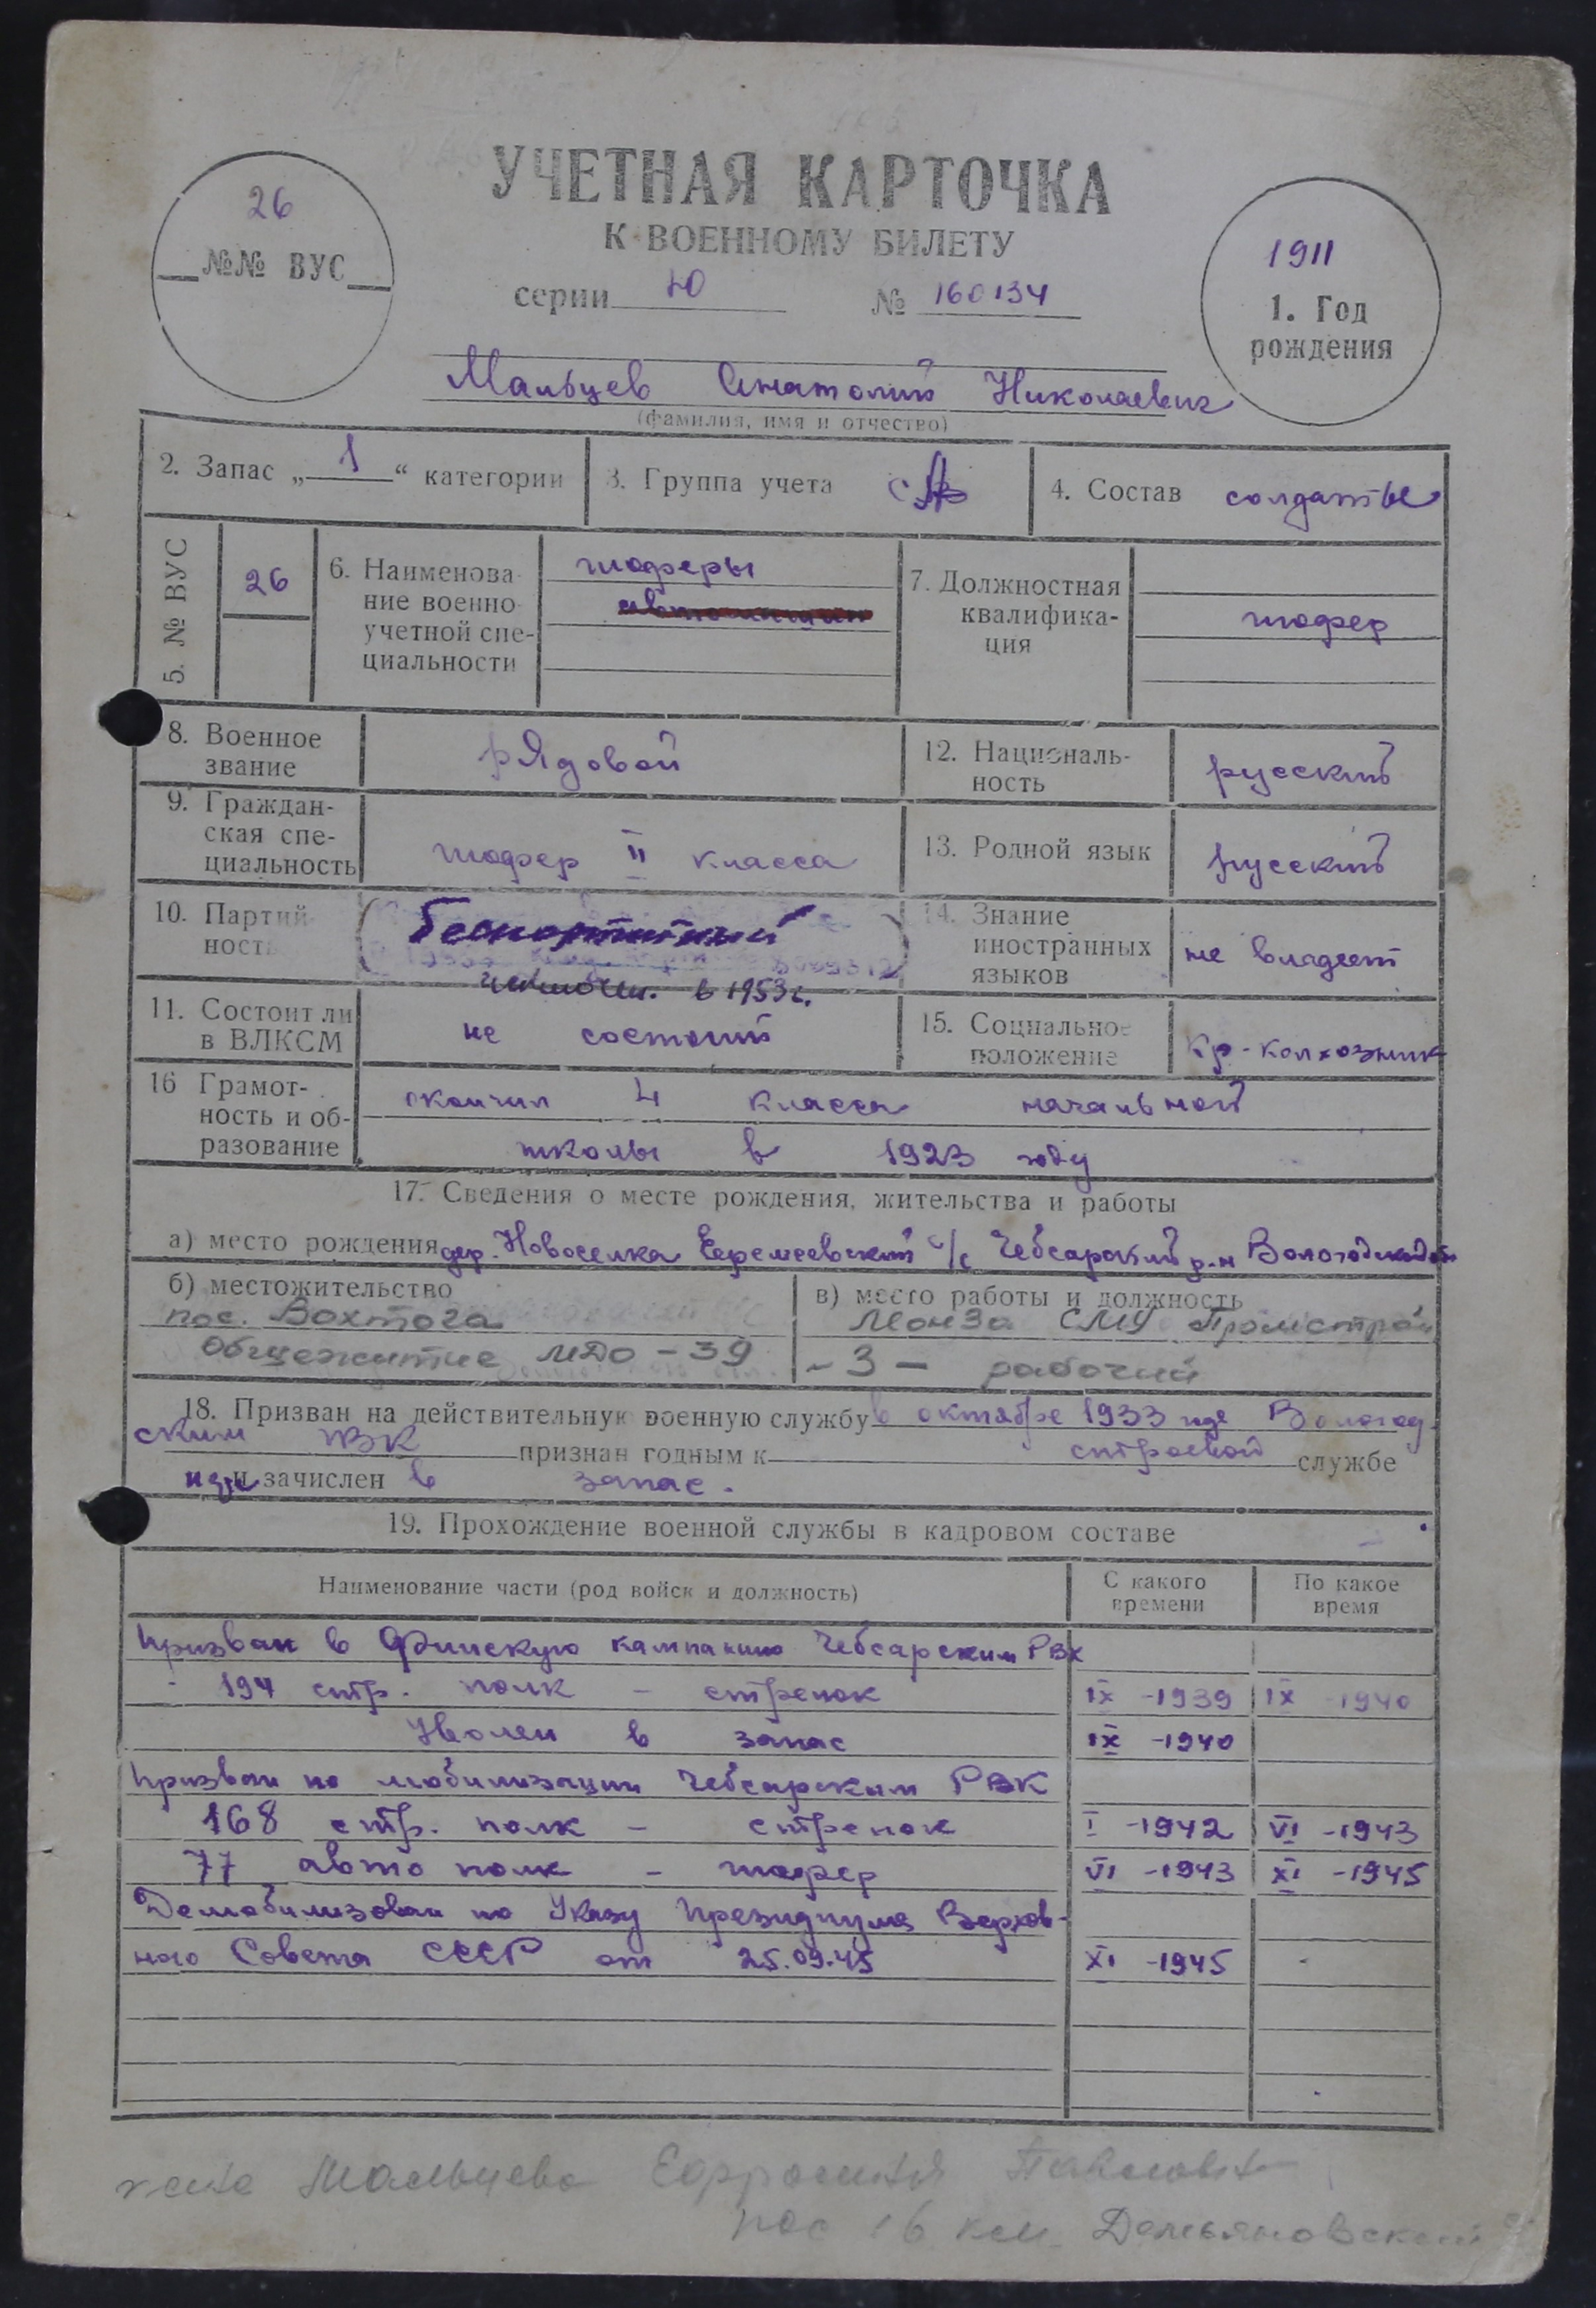 УЧЕТНАЯ КАРТОЧКА
К ВОЕННОМУ БИЛЕТУ
серии Ю № 160134
26
№№ ВУС
1911
1. Год
рождения
Мальцев Анатолий Николаевич
(фамилия, имя и отчество)
2. Запас „ 1 “ категории
3. Группа учета СА
4. Состав солдаты
5. № ВУС
26
6. Наименова-
ние военно-
учетной спе-
циальности
шоферы
7. Должностная
квалифика-
ция
шофер
8. Военное
звание
рядовой
12. Националь-
ность
русский
9. Граждан-
ская спе-
циальность
шофер II класса
13. Родной язык
русский
10. Партий
ность
Беспартийный
исключен. в 1953 г.
14. Знание
иностранных
языков
не владеет
11. Состоит ли
в ВЛКСМ
не состоит
15. Социальное
положение
кр-колхозник
16 Грамот-
ность и об-
разование
окончил 4 класса начальной
школы в 1923 году
17. Сведения о месте рождения, жительства и работы
а) место рождения дер. Новоселка Еремеевский с/с Чебсарский р-н Вологодской обл
б) местожительство
пос. Вохтога
Общежитие МДО - 39
в) место работы и должность
Монза СМУ Промстрой
- 3 - рабочий
18. Призван на действительную военную службу в октябре 1933 года Вологод-
ским РВК признан годным к строевой службе
и зачислен в запас.
19. Прохождение военной службы в кадровом составе
Наименование части (род войск и должность)
С какого
времени
По какое
время
Призван в Финскую кампанию Чебсарским РВК
194 стр. полк - стрелок IX -1939 IX -1940
Уволен в запас IX -1940
Призван по мобилизации Чебсарским РВК
168 стр. полк - стрелок I -1942 VI -1943
77 авто полк - шофер VI -1943 XI -1945
Демобилизован по Указу Президиума Верхов-
ного Совета СССР от 25.09.45 XI -1945
жена Мальцева Ефросиния Павловна
пос 16 км Демьяновский